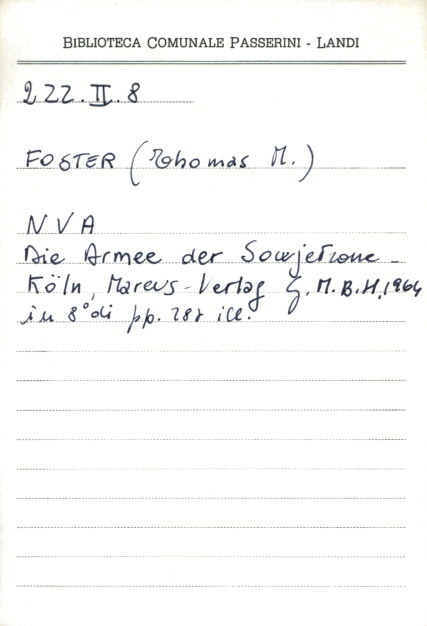 BIBLIOTECA COMUNALE PASSERINI - LANDI
222.II.8
FOSTER (Thomas M.)
NVA
Die Armee der Sowjetzone -
Köln, Marcus-Verlag G.M.B.H, 1964
in 8° di pp. ill.